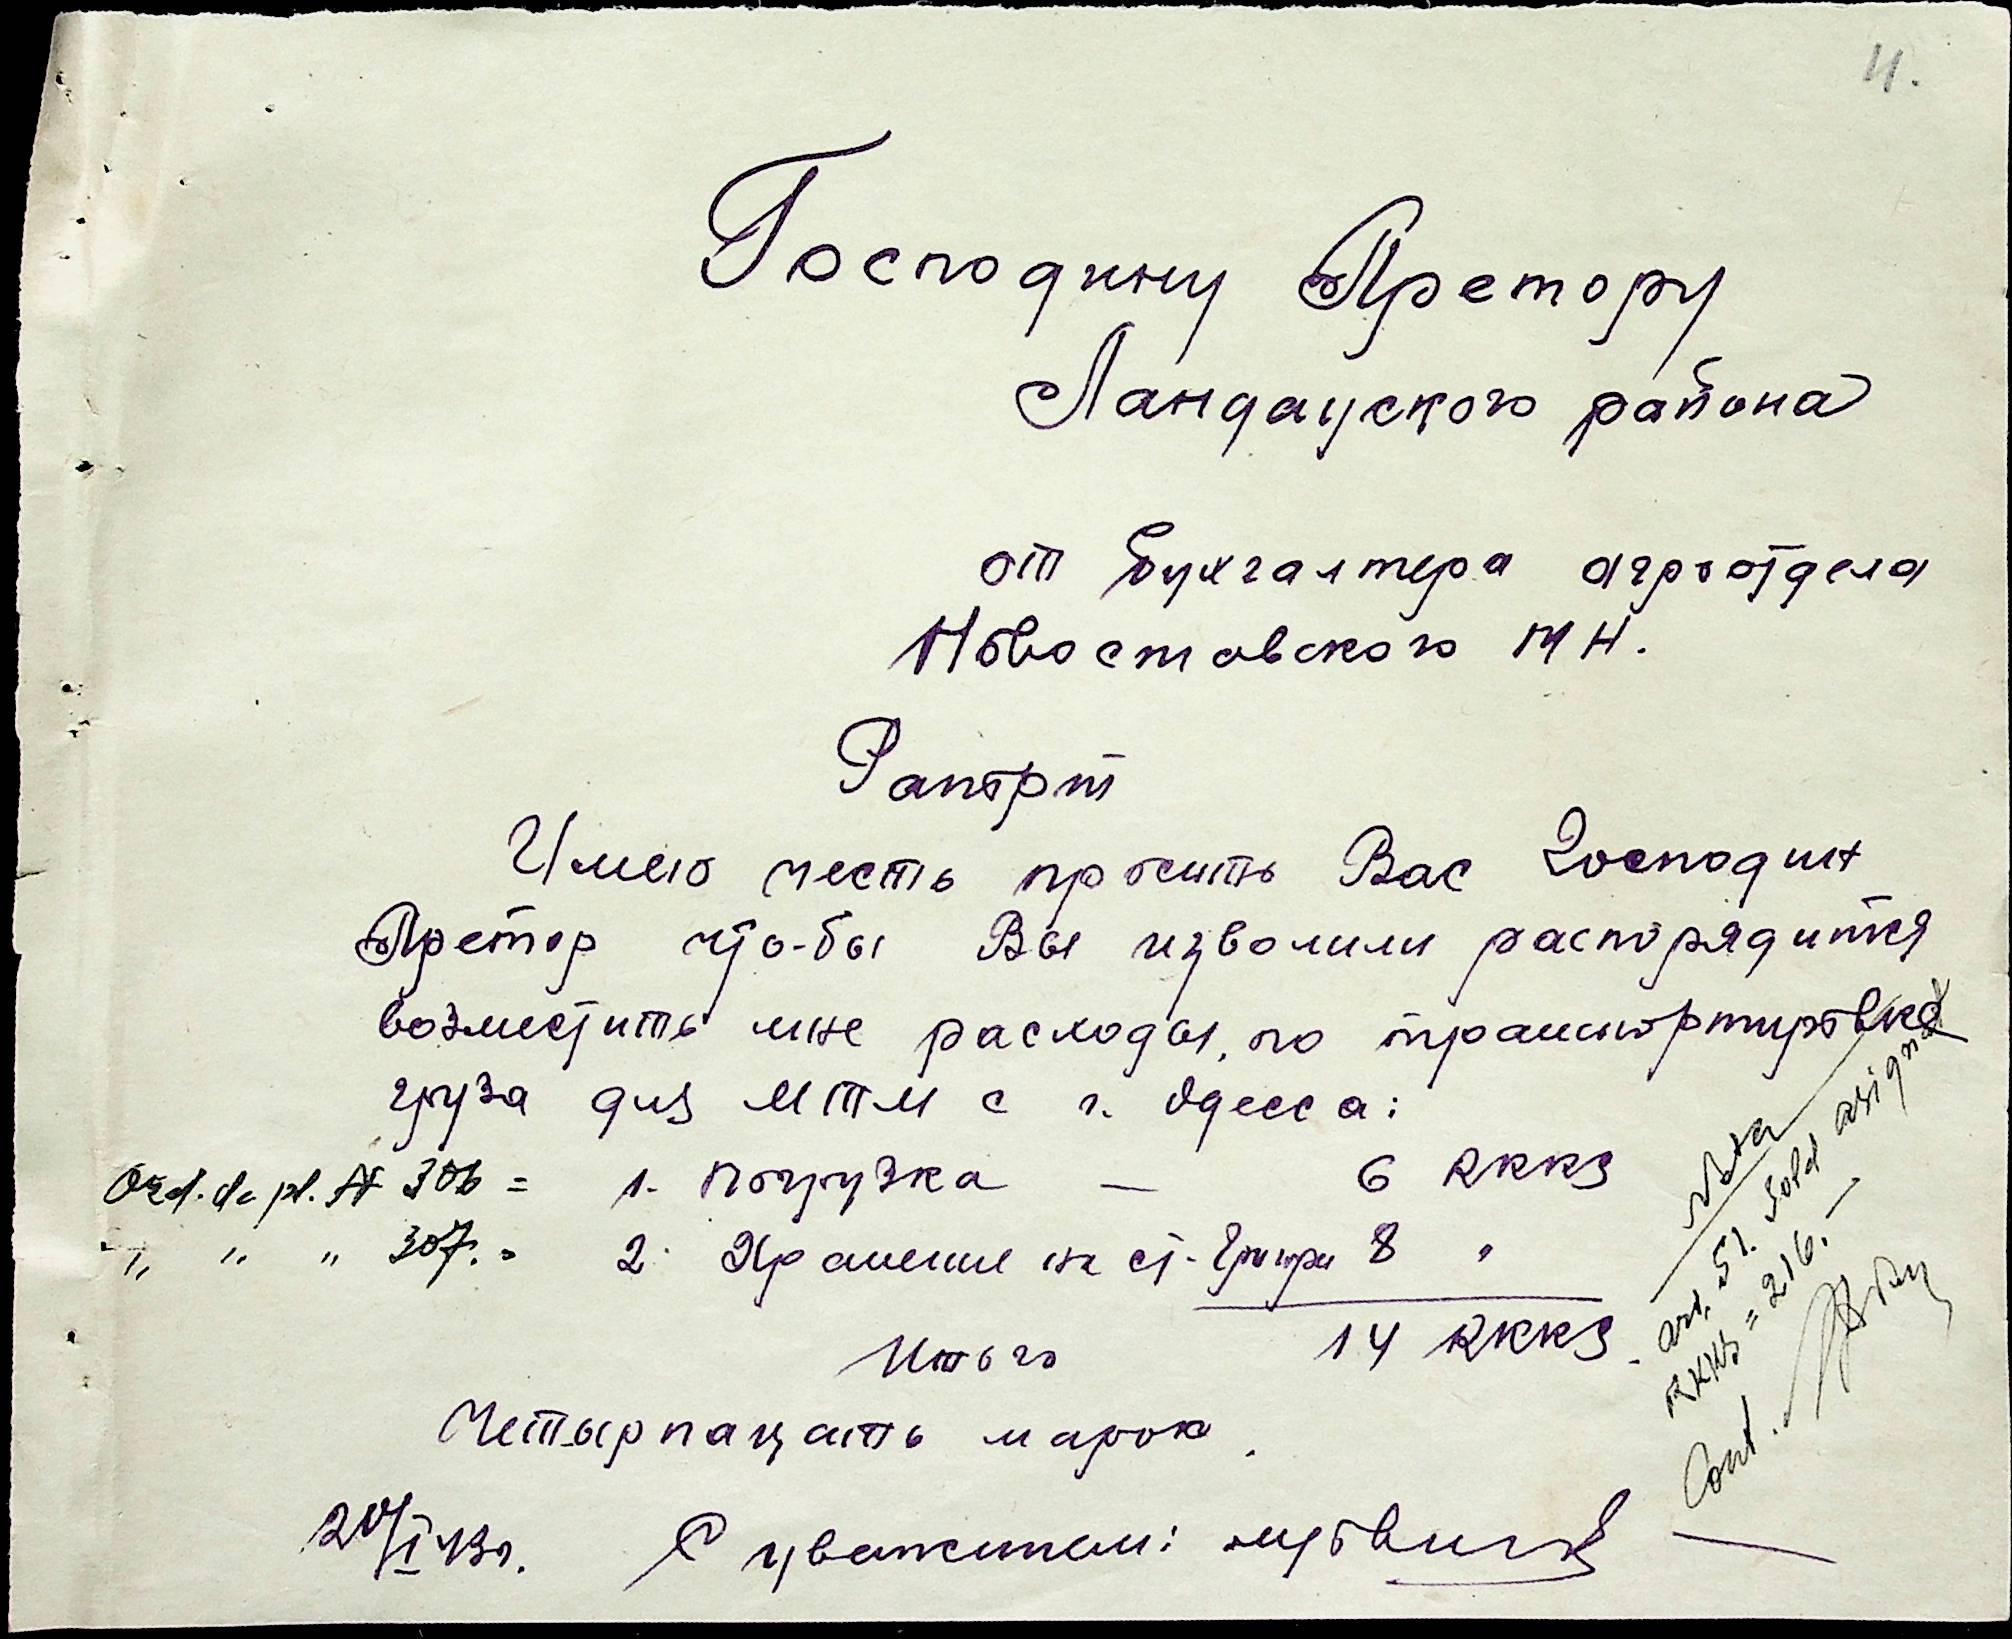 11.
Господину Претору
Ландауского района
от бухгалтера агроотдела
Новостовского МН.
Рапорт
Имею честь просить Вас Господин
Претор что-бы Вы изволили распорядится
возместить мне расходы, по транспортировке
груза для МТМ с г. Одесса:
Ord. de pl. № 306 = 1. Погрузка — 6 RKKS
" " " 307. = 2. Хранение на ст. 8 "
14 RKKS.
Итого
Четырнацать марок.
20/I 43г. С уважением:
Nota
art. 51. Sold asignat
RKKS = 216.—
Cont.